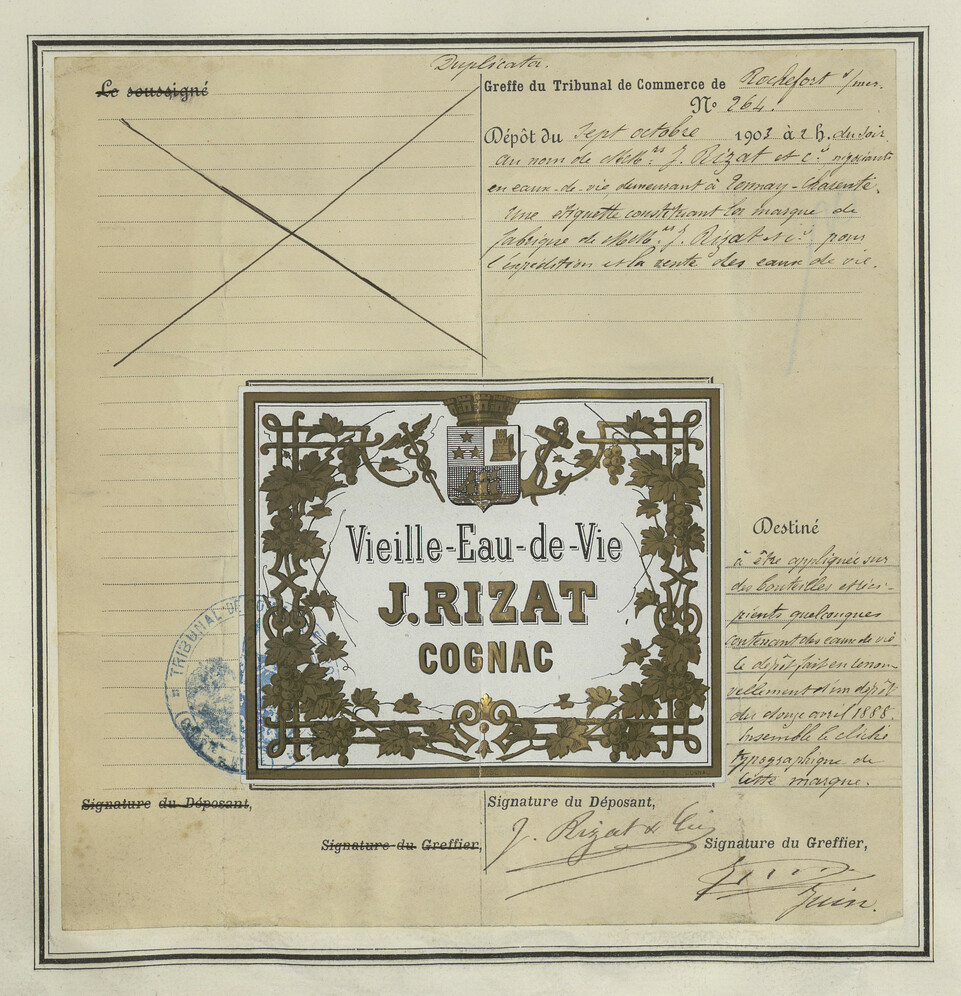 Duplicata.
Le soussigné
Greffe du Tribunal de Commerce de Rochefort s/mer.
N° 264.
Dépôt du sept octobre 1903 à 2 h. du soir
au nom de MM.rs J. Rizat et Cie négociants
en eaux-de-vie demeurant à Tonnay-Charente.
Une étiquette constituant la marque de
fabrique de MM.rs J. Rizat et Cie pour
l'expédition et la vente des eaux de vie.
Vieille-Eau-de-Vie
J. RIZAT
COGNAC
TRIBUNAL DE
Destiné
à être appliquée sur
des bouteilles et réci-
pients quelconques
contenant des eaux de vie
le dépôt fait en renou-
vellement d'un dépôt
du douze avril 1888.
Ensemble le cliché
typographique de
cette marque.
Signature du Déposant,
Signature du Greffier,
Signature du Déposant,
J. Rizat & Cie
Signature du Greffier,